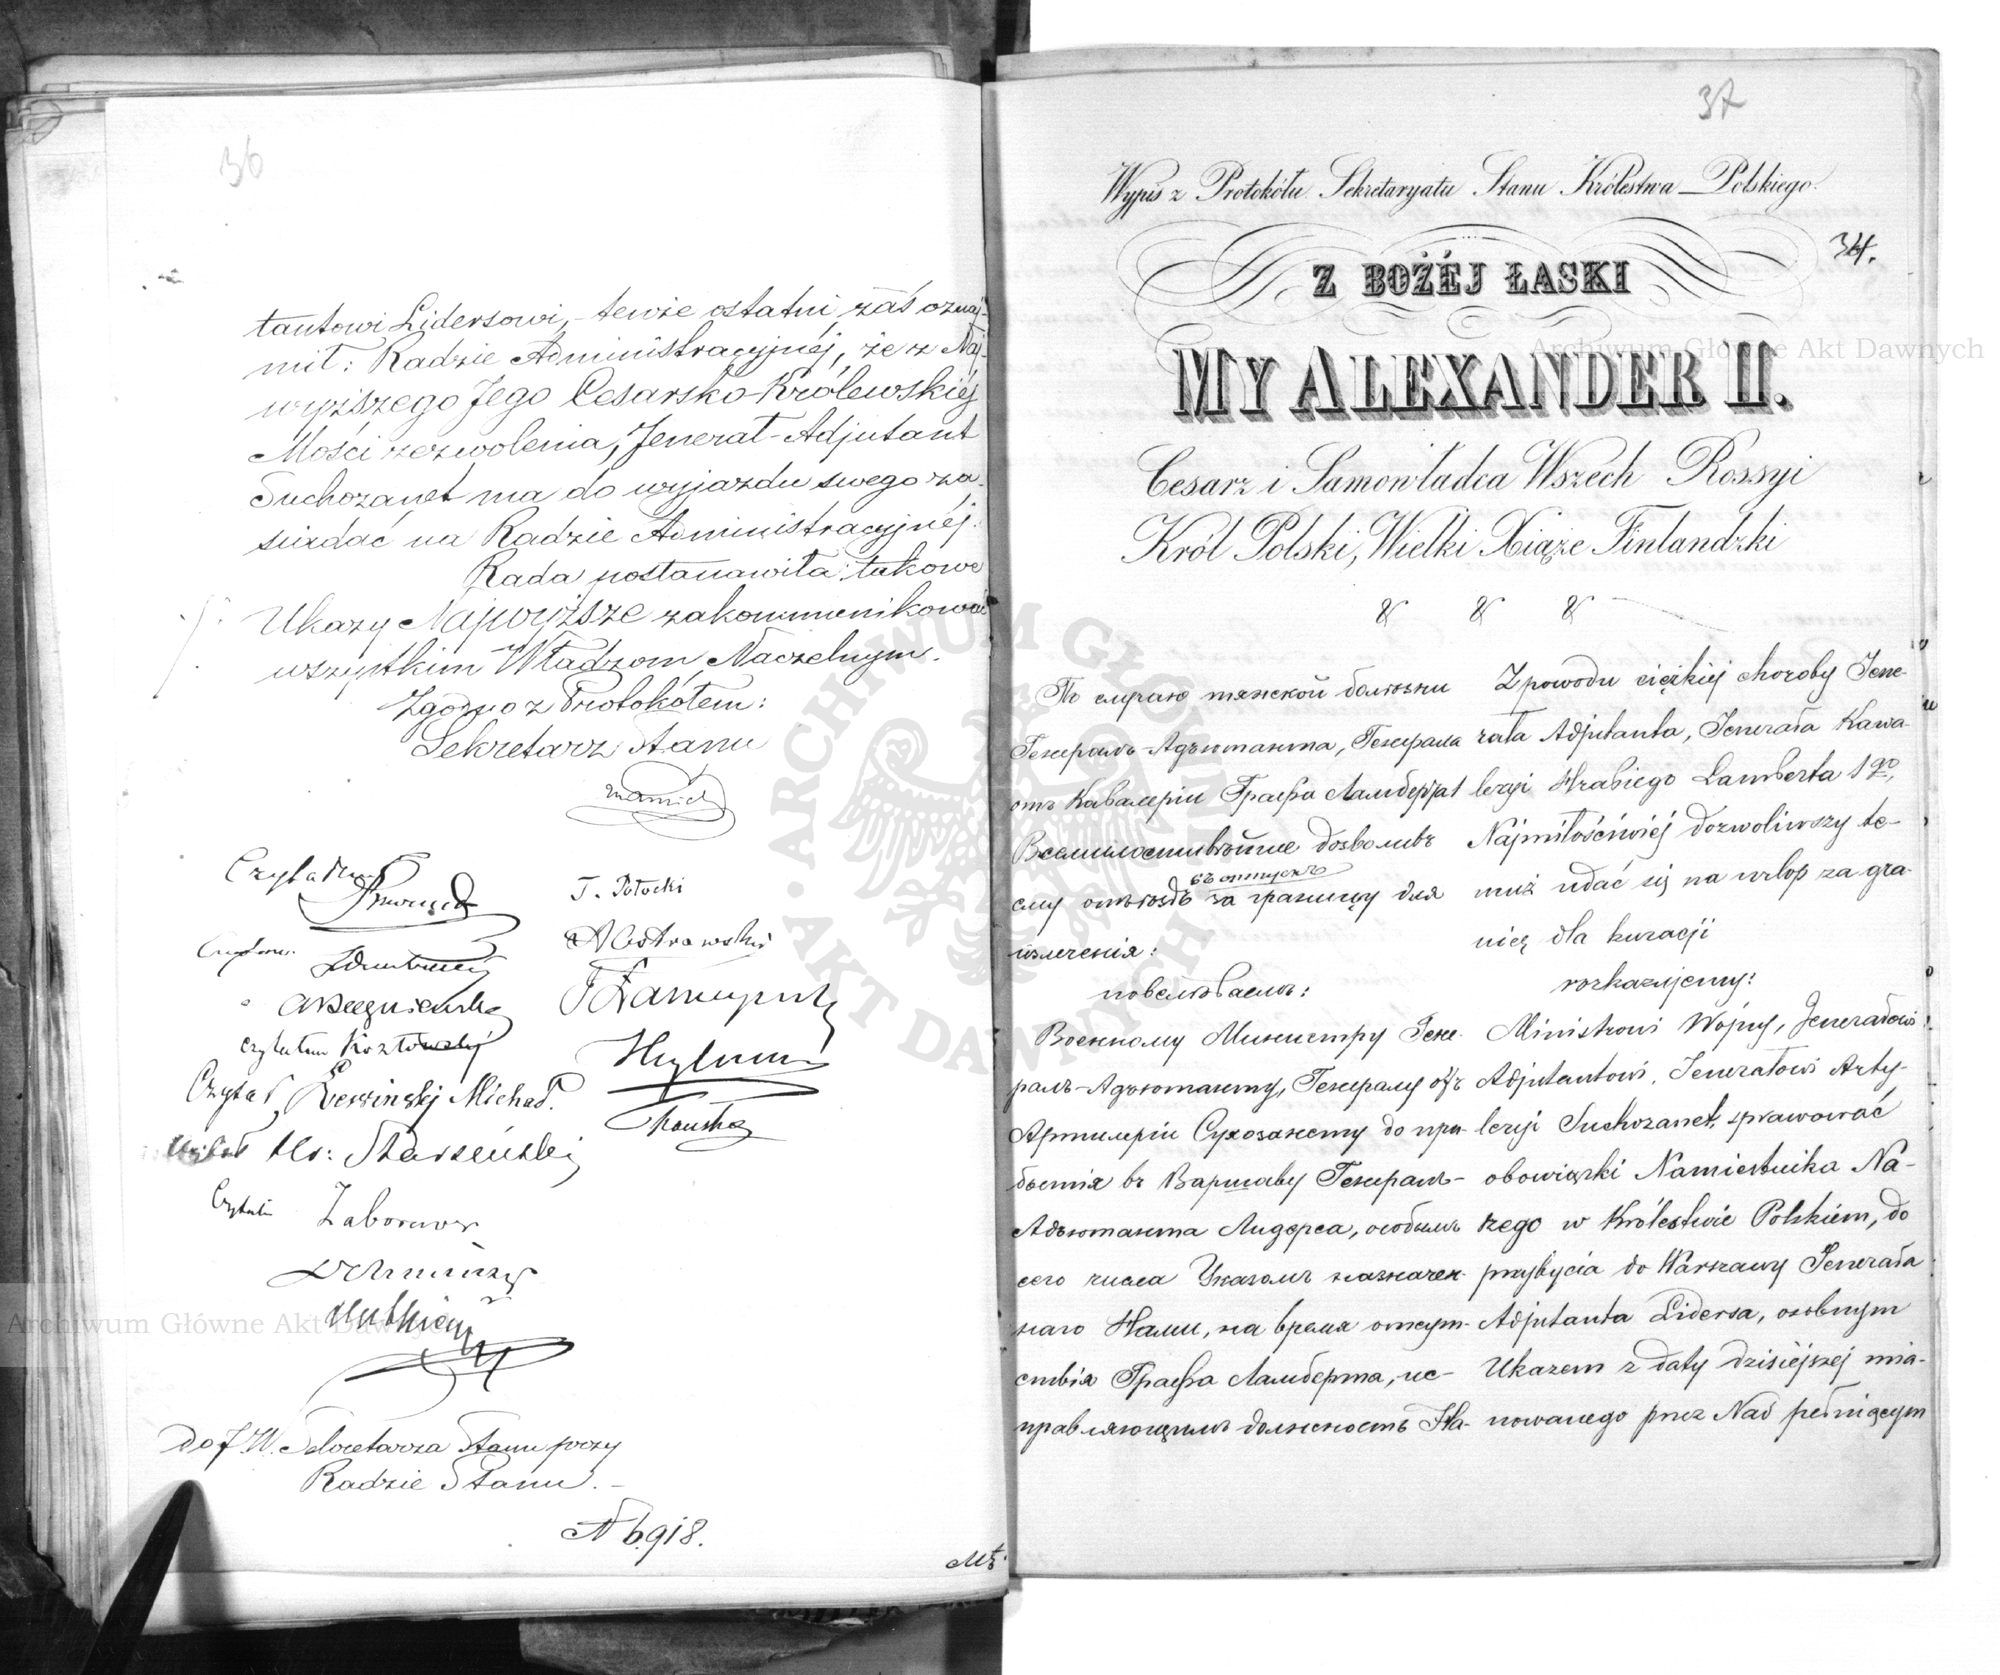 36
tantowi Lidersowi, - tenże ostatni zaś oznaj-
mił: Radzie Administracyjnéj, że z Naj-
wyższego Jego Cesarsko-Królewskiéj
Mości zezwolenia, Jenerał-Adjutant
Suchozanet ma do wyjazdu swego za-
siadać na Radzie Administracyjnéj.
Rada postanowiła: takowe
Ukazy Najwyższe zakommunikować
wszystkim Władzom Naczelnym.
Zgodno z Protokółem:
Sekretarz Stanu
Czytałem
T. Potocki
Czytałem
A Ostrowski
czytałem Kozłowski
Czytał Leszinskj Michał.
Czytał Starzeński
Czytałem
do J. W. Sekretarza Stanu przy
Radzie Stanu. -
N 6918.
37
Wypis z Protokółu Sekretaryatu Stanu Królestwa Polskiego.
34.
Z BOŻÉJ ŁASKI
MY ALEXANDER II.
Cesarz i Samowładca Wszech Rossyi
Król Polski, Wielki Xiąże Finlandzki
& & &
По случаю тяжской болѣзни
Генералъ-Адъютанта, Генерала
отъ Кавалеріи Графа Ламберта 1
Всемилостивѣйше дозволивъ
въ отпускъ
ему отъѣздъ за границу для
излеченія:
повелѣваемъ:
Военному Министру Гене-
ралъ-Адъютанту, Генералу отъ
Артилеріи Сухозанету до при-
бытія въ Варшаву Генералъ-
Адъютанта Лидерса, особымъ
сего числа Указомъ назначен-
наго Нами, на время отсут-
ствія Графа Ламберта, ис-
правляющимъ должность На-
Z powodu ciężkiej choroby Jene-
rała Adjutanta, Jenerała Kawa-
leryi Hrabiego Lamberta 1go,
Najmiłościwiéj dozwoliwszy te-
muż udać się na urlop za gra-
nicę dla kuracji
rozkazujemy:
Ministrowi Wojny, Jenerałowi
Adjutantowi, Jenerałowi Arty-
leryi Suchozanet, sprawować
obowiązki Namiestnika Na-
szego w Królestwie Polskiem, do
przybycia do Warszawy Jenerała
Adjutanta Lidersa, osobnym
Ukazem z daty dzisiéjszej mia-
nowanego przez Nas pełniącym
ARCHIWUM GŁÓWNE AKT DAWNYCH
Archiwum Główne Akt Dawnych
Archiwum Główne Akt Dawnych